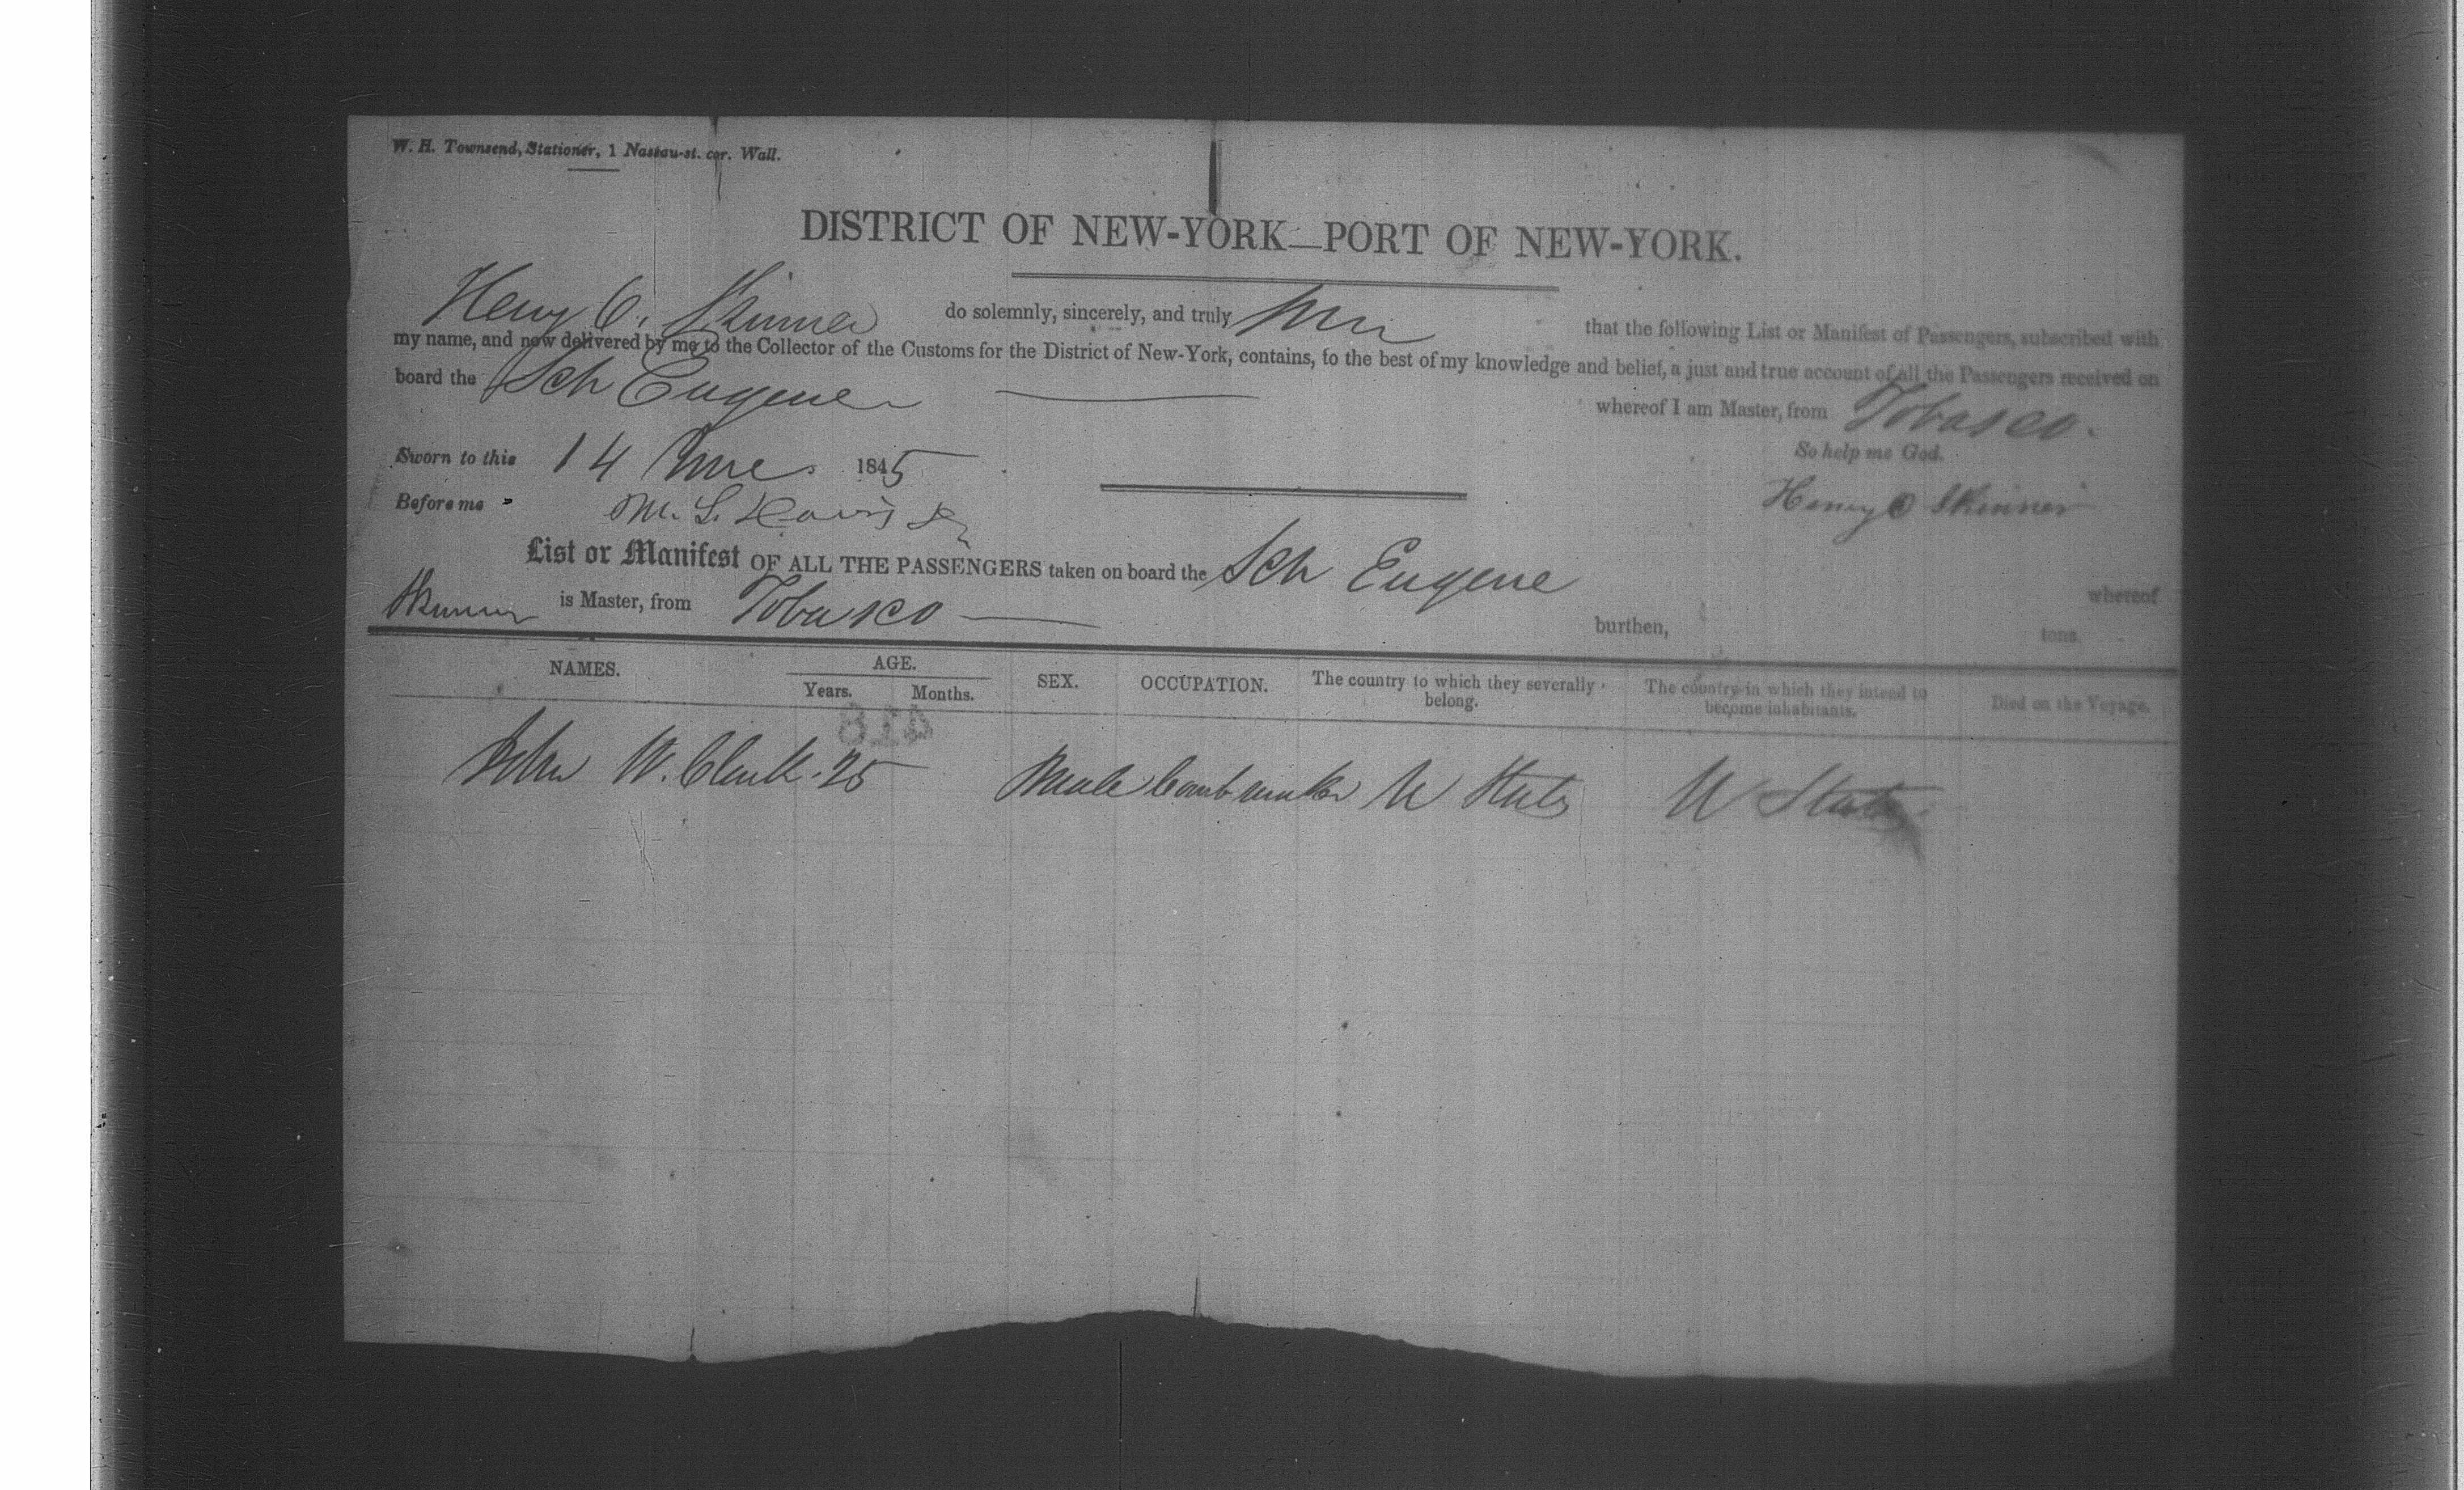 W. H. Townsend, Stationer, 1 Nassau-st. cor. Wall.
DISTRICT OF NEW-YORK—PORT OF NEW-YORK.
Henry C. Skinner do solemnly, sincerely, and truly that the following List or Manifest of Passengers, subscribed with
my name, and now delivered by me to the Collector of the Customs for the District of New-York, contains, to the best of my knowledge and belief, a just and true account of all the Passengers received on
board the Sch Eugene whereof I am Master, from Tobasco.
So help me God.
Sworn to this 14 June 1845
Henry C Skinner
Before me M. L. Davis
List or Manifest OF ALL THE PASSENGERS taken on board the Sch Eugene whereof
Skinner is Master, from Tobasco burthen, tons.
NAMES. AGE. Years. Months. SEX. OCCUPATION. The country to which they severally belong. The country in which they intend to become inhabitants. Died on the Voyage.
418
John W. Clark. 25 Male Comb maker U States U States